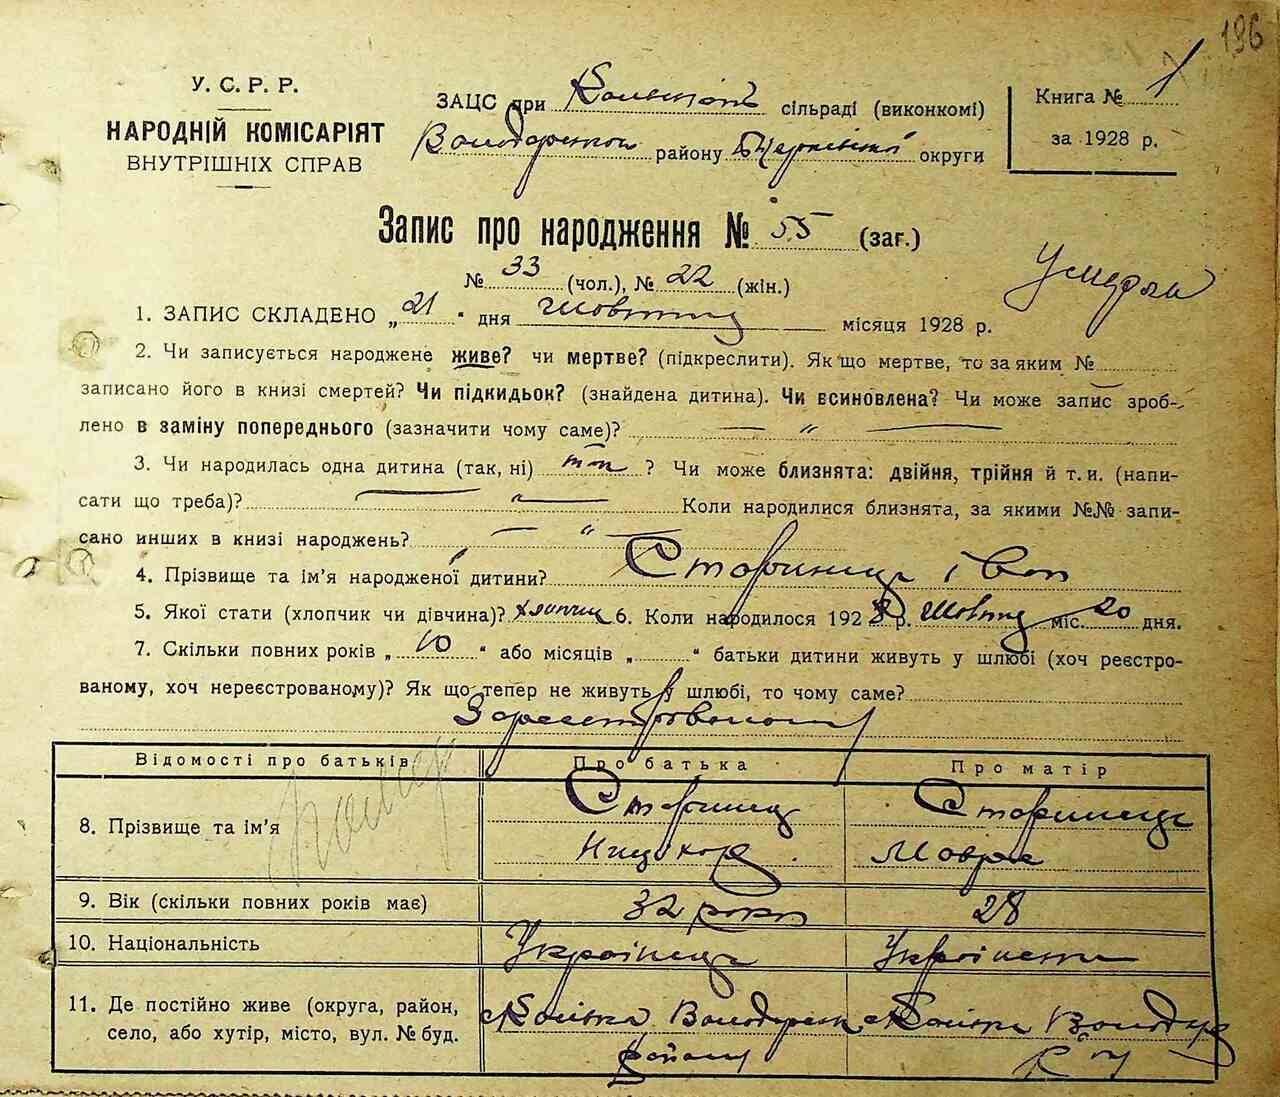 196
У. С. Р. Р.
НАРОДНІЙ КОМІСАРІЯТ
ВНУТРІШНІХ СПРАВ
ЗАЦС при сільраді (виконкомі)
Володарського району Б Церківської округи
Книга № 1
за 1928 р.
Запис про народження № 55 (заг.)
№ 33 (чол.), № 22 (жін.)
Умерли
1. ЗАПИС СКЛАДЕНО „21" дня Жовтня місяця 1928 р.
2. Чи записується народжене живе? чи мертве? (підкреслити). Як що мертве, то за яким №
записано його в книзі смертей? Чи підкидьок? (знайдена дитина). Чи всиновлена? Чи може запис зроб-
лено в заміну попереднього (зазначити чому саме)? — „ —
3. Чи народилась одна дитина (так, ні) так ? Чи може близнята: двійня, трійня й т. и. (напи-
сати що треба)? — „ — Коли народилися близнята, за якими №№ запи-
сано инших в книзі народжень? — „ —
4. Прізвище та ім'я народженої дитини? Сторинець Іван
5. Якої стати (хлопчик чи дівчина)? хлопчик 6. Коли народилося 1928 р. Жовтня міс. 20 дня.
7. Скільки повних років „ 10 " або місяців „ " батьки дитини живуть у шлюбі (хоч реєстро-
ваному, хоч нереєстрованому)? Як що тепер не живуть у шлюбі, то чому саме?
Зареестрованому
Відомості про батьків Про батька Про матір
8. Прізвище та ім'я Сторинець Сторинець
Ничипор Мавра
9. Вік (скільки повних років має) 32 роки 28
10. Національність Українець Українка
11. Де постійно живе (округа, район, Володарськ Володар
село, або хутір, місто, вул. № буд. району р ну